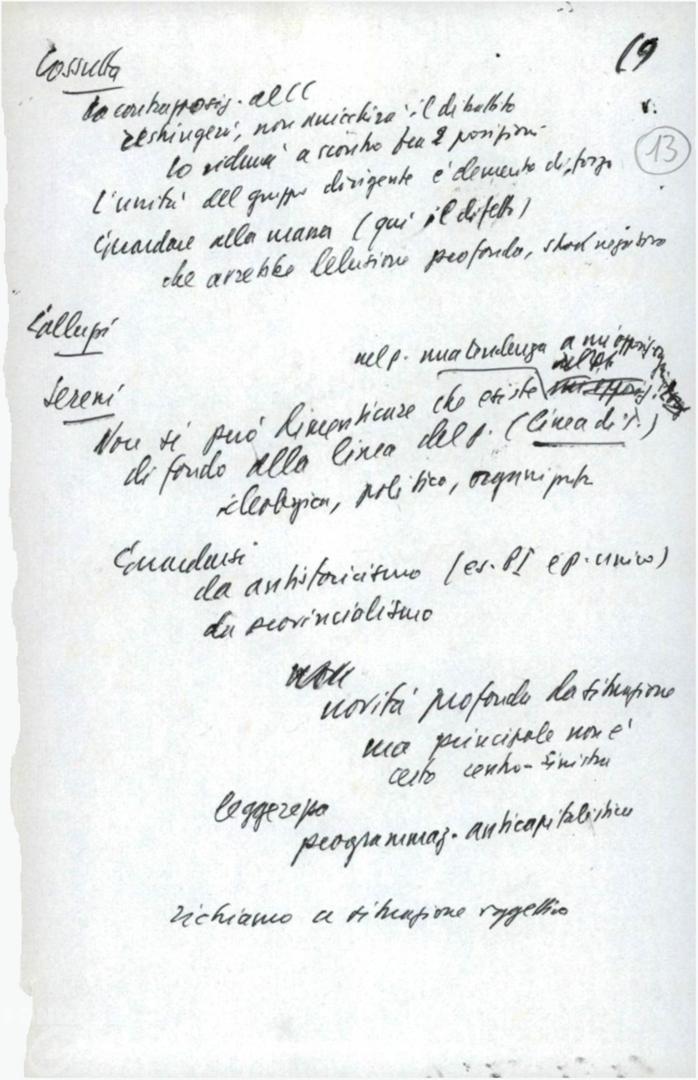 Cossutta
19
la contrapposiz. al CC
13
restringerà, non arricchirà il dibattito
lo ridurrà a scontro tra 2 posizioni
L'unità del gruppo dirigente è elemento di forza
Guardare alla massa (qui il difetto)
che avrebbe delusione profonda, negativo
Galluzzi
nel p. una tendenza
Sereni
Non si può dimenticare che esiste
di fondo alla linea del p. (linea di T.)
ideologica, politica, organizzata
Guardarsi
da antistoricismo (es. PSI e p. unico)
da provincialismo
novità profonda la situazione
ma principale non è
certo centro-sinistra
leggerezza
programmaz. anticapitalistica
richiamo a situazione oggettiva